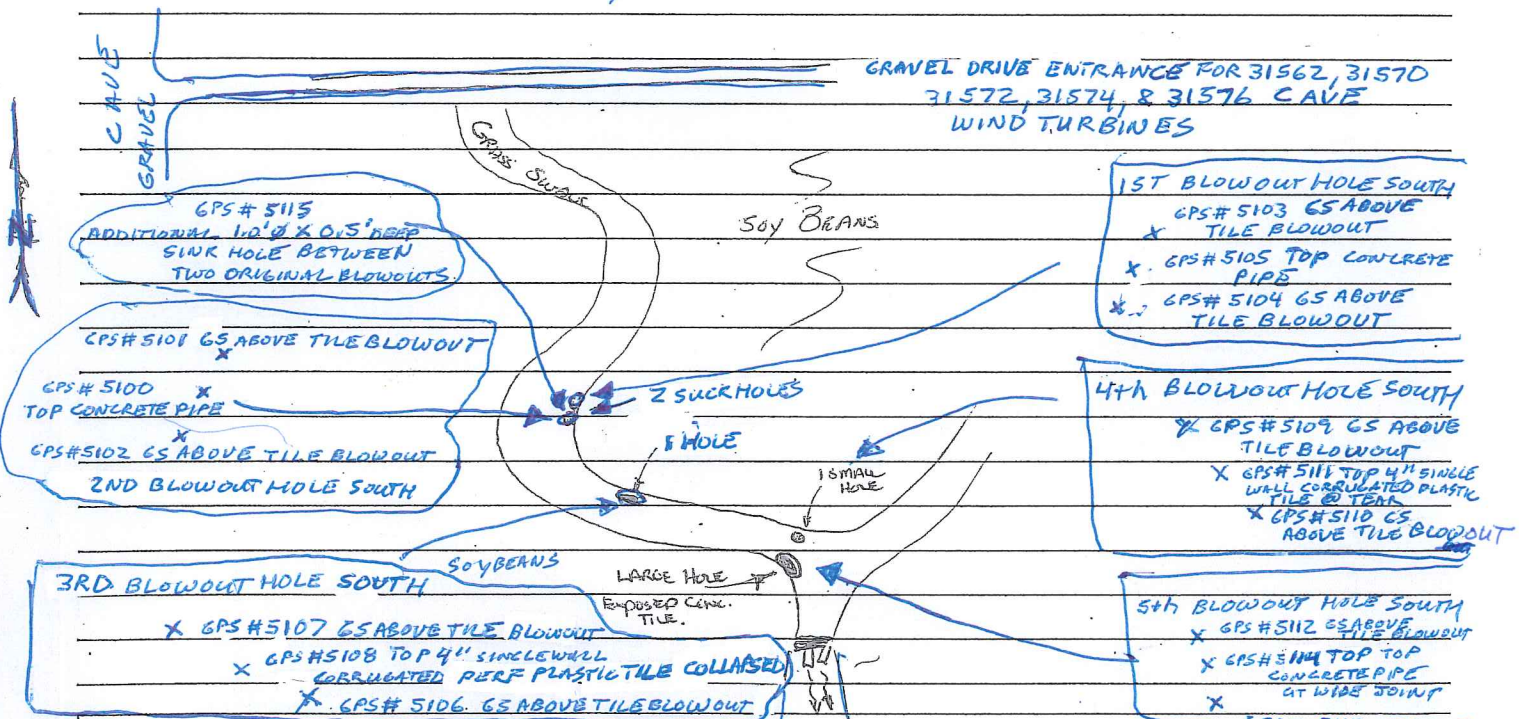 CAVE
GRAVEL
GRAVEL DRIVE ENTRANCE FOR 31562, 31570
31572, 31574, & 31576 CAVE
WIND TURBINES
N
GRASS SWALE
SOY BEANS
GPS# 5115
ADDITIONAL 1.0'Ø X 0.5' DEEP
SINK HOLE BETWEEN
TWO ORIGINAL BLOWOUTS
1ST BLOWOUT HOLE SOUTH
GPS# 5103 GS ABOVE
X TILE BLOWOUT
X GPS# 5105 TOP CONCRETE
PIPE
X GPS# 5104 GS ABOVE
TILE BLOWOUT
GPS# 5101 GS ABOVE TILE BLOWOUT
X
GPS# 5100 X
TOP CONCRETE PIPE
X
GPS# 5102 GS ABOVE TILE BLOWOUT
2ND BLOWOUT HOLE SOUTH
2 SUCKHOLES
1 HOLE
1 SMALL
HOLE
4th BLOWOUT HOLE SOUTH
X GPS# 5109 GS ABOVE
TILE BLOWOUT
X GPS# 5111 TOP 4" SINGLE
WALL CORRUGATED PLASTIC
TILE @ TEAR
X GPS# 5110 GS
ABOVE TILE BLOWOUT
SOYBEANS
LARGE HOLE
EXPOSED CONC.
TILE.
3RD BLOWOUT HOLE SOUTH
X GPS #5107 GS ABOVE TILE BLOWOUT
X GPS #5108 TOP 4" SINGLEWALL
CORRUGATED PERF PLASTIC TILE COLLAPSED
X GPS# 5106 GS ABOVE TILE BLOWOUT
5th BLOWOUT HOLE SOUTH
X GPS# 5112 GS ABOVE
TILE BLOWOUT
X GPS# 5114 TOP TOP
CONCRETE PIPE
AT WIDE JOINT
X